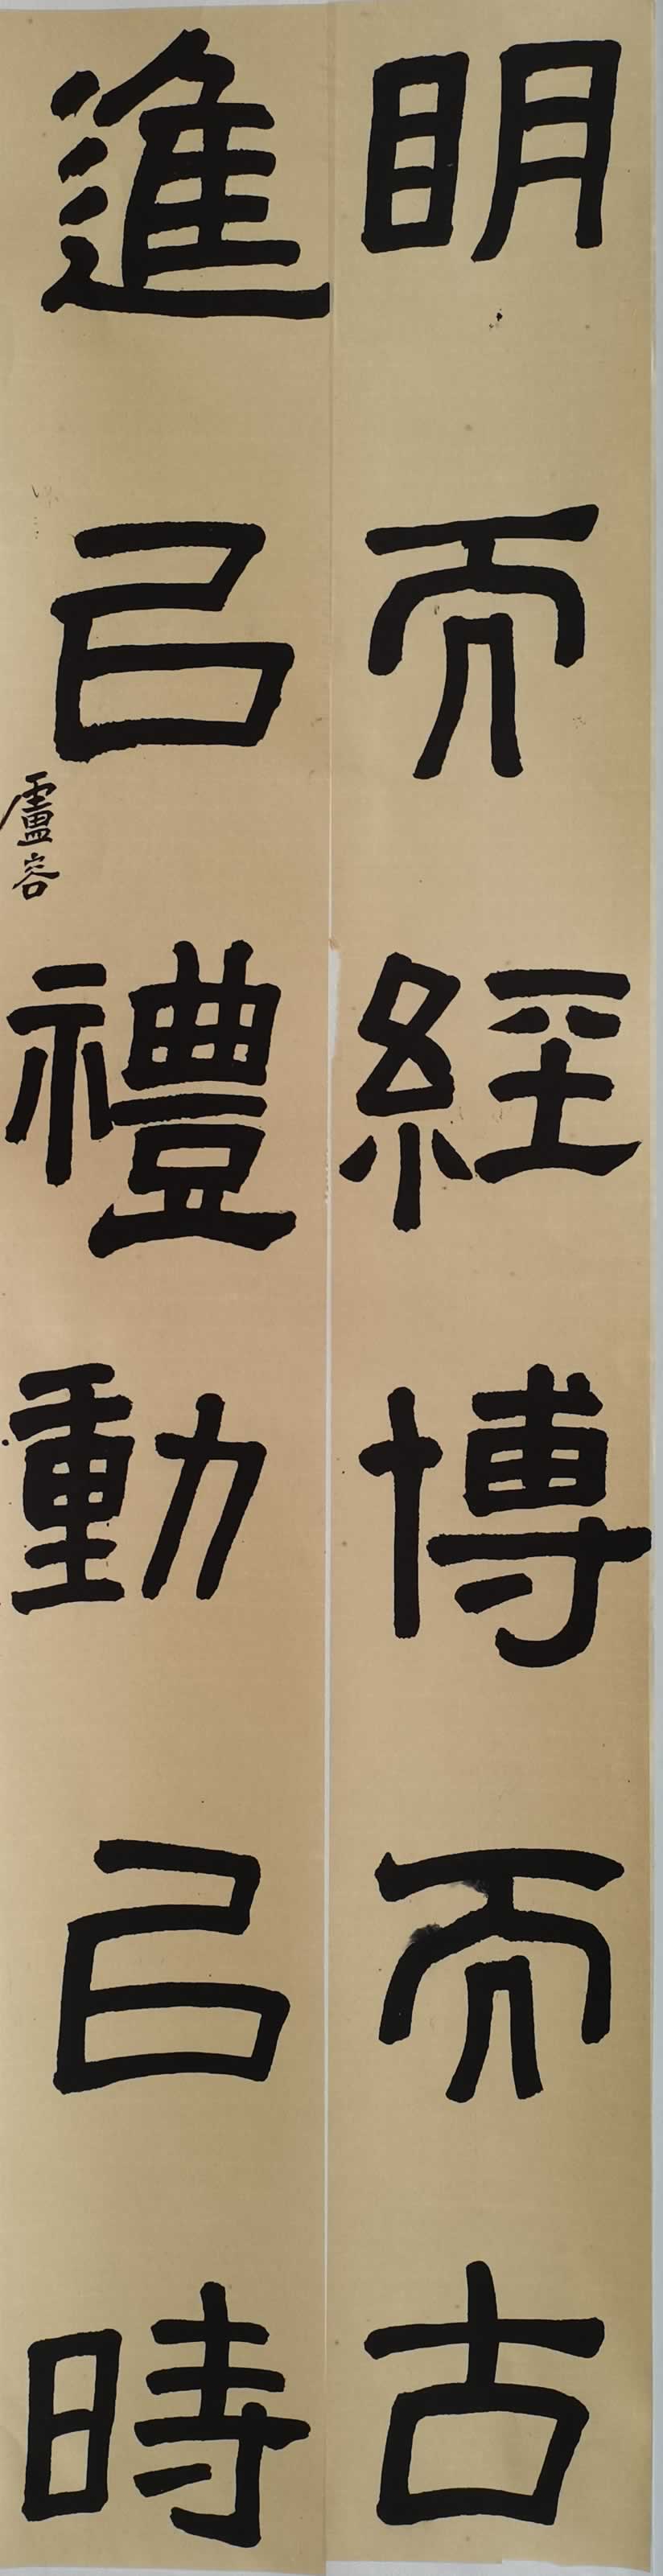 明而經博而古
進㠯禮動㠯時
盧容